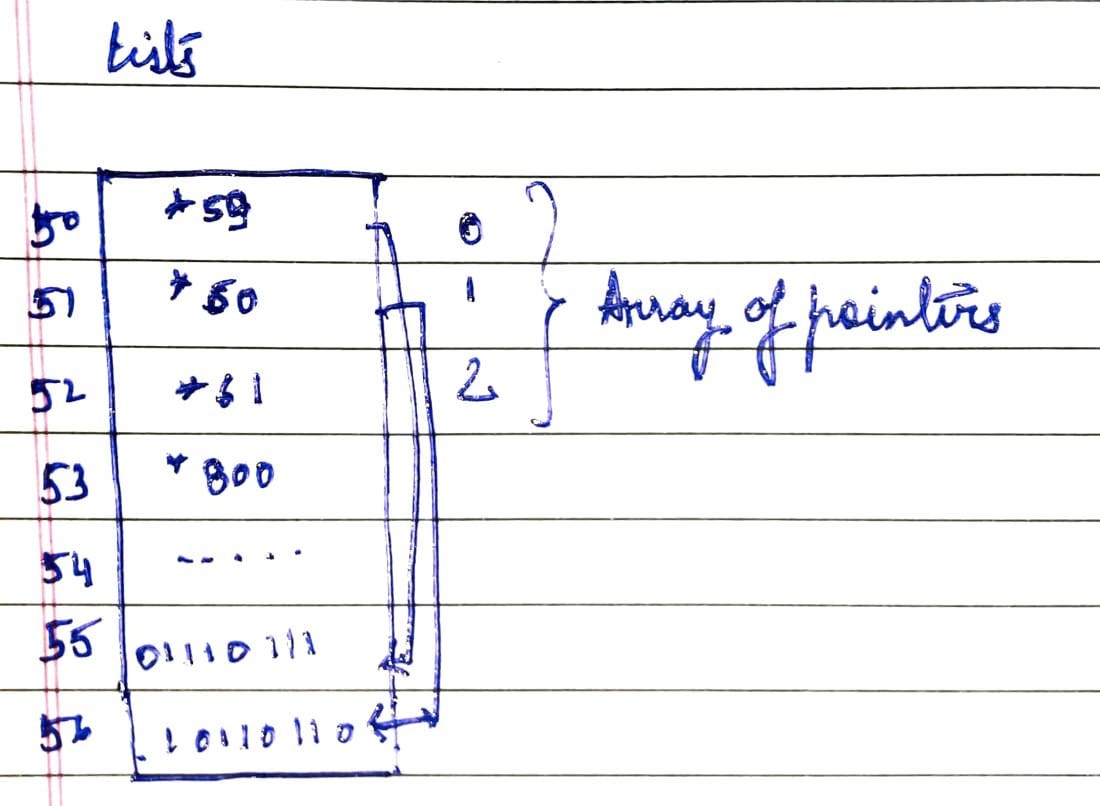 Lists
50 *59 0
51 *60 1 Array of pointers
52 *61 2
53 *800
54 -----
55 01110111
56 10110110